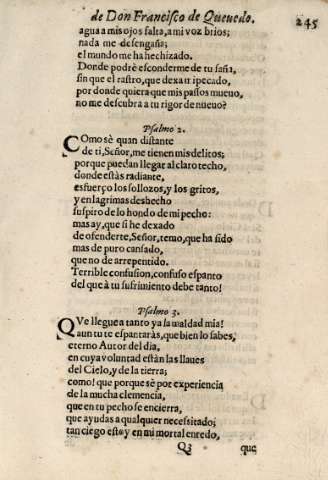 de Don Francisco de Queuedo. 245
agua a mis ojos falta, a mi voz brios;
nada me desengaña;
el mundo me ha hechizado.
Donde podrè esconderme de tu saña,
sin que el rastro, que dexa mi pecado,
por donde quiera que mis passos mueuo,
no me descubra a tu rigor de nueuo?
Psalmo 2.
Como sè quan distante
de ti, Señor, me tienen mis delitos;
porque puedan llegar al claro techo,
donde estàs radiante,
esfuerço los sollozos, y los gritos,
y en lagrimas deshecho
suspiro de lo hondo de mi pecho:
mas ay, que si he dexado
de ofenderte, Señor, temo, que ha sido
mas de puro cansado,
que no de arrepentido.
Terrible confusion, confuso espanto
del que à tu sufrimiento debe tanto!
Psalmo 3.
QVe llegue a tanto ya la maldad mia!
aun tu te espantaràs, que bien lo sabes,
eterno Autor del dia,
en cuya voluntad estàn las llaues
del Cielo, y de la tierra;
como! que porque sè por experiencia
de la mucha clemencia,
que en tu pecho se encierra,
que ayudas a qualquier necessitado;
tan ciego estoy en mi mortal enredo,
Q3 que